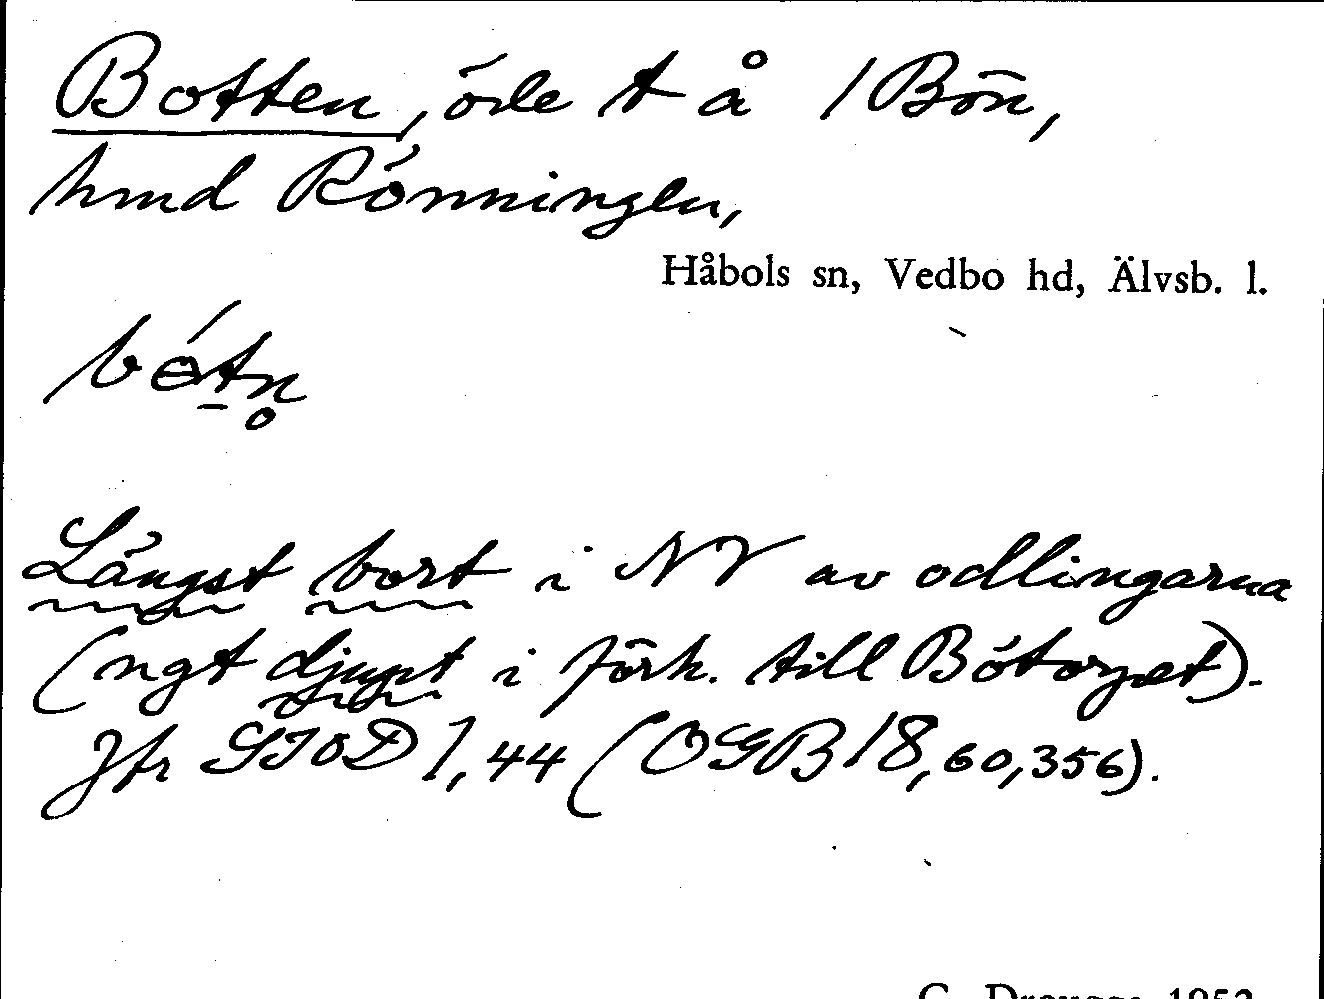 Botten, öde t å 1 Bön,
hmd Rönningen,
Håbols sn, Vedbo hd, Älvsb. l.
bɵ́tn̥
Längst bort i NV av odlingarna
(ngt djupt i förh. till Bötorpet).
Jfr SIOD 1, 44 (OGB 18, 60, 356).